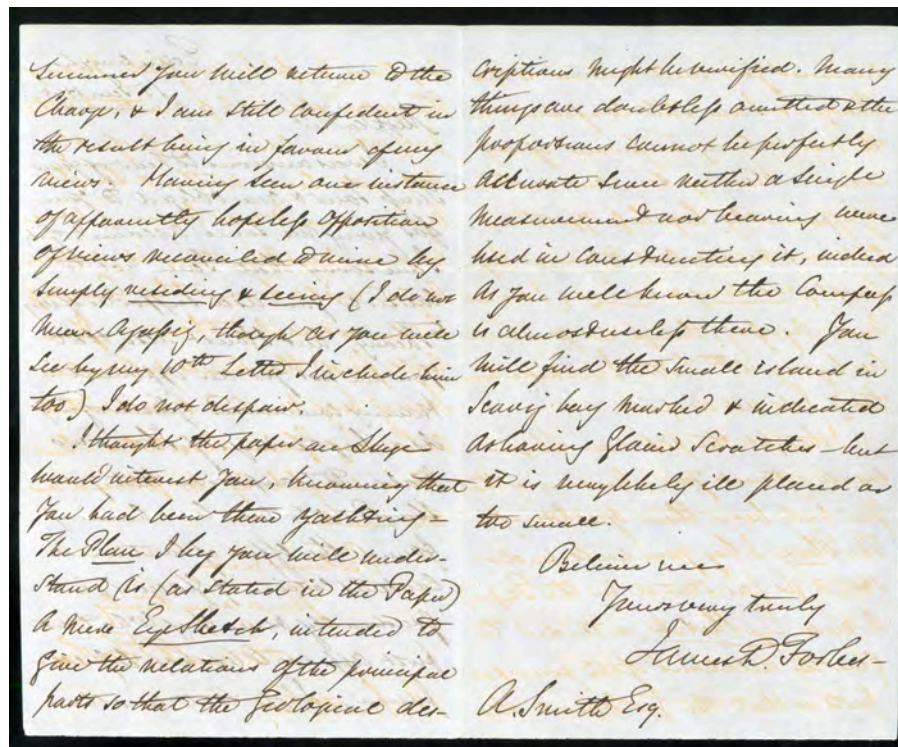 Summer you will return to the
Charge, & I am still confident in
the result being in favour of my
views. Having seen one instance
of apparently hopeless opposition
of views reconciled to mine by
simply residing & seeing (I do not
mean Agassiz, though as you will
see by my 10th Letter I include him
too) I do not despair.
I thought the paper on Skye
would interest you, knowing that
you had been there yachting –
The Plan I beg you will under-
stand is (as stated in the Paper)
a mere Eye Sketch, intended to
give the relations of the principal
parts so that the Geological des-
criptions might be verified. Many
things are doubtless omitted & the
proportions cannot be perfectly
accurate since neither a single
measurement nor bearing were
used in constructing it, indeed
as you well know the Compass
is almost useless there. You
will find the small island in
Scavig bay marked & indicated
as having Glacier Scratches – but
it is very likely ill placed or
too small.
Believe me
Yours very truly
James D. Forbes –
A. Smith Esq.